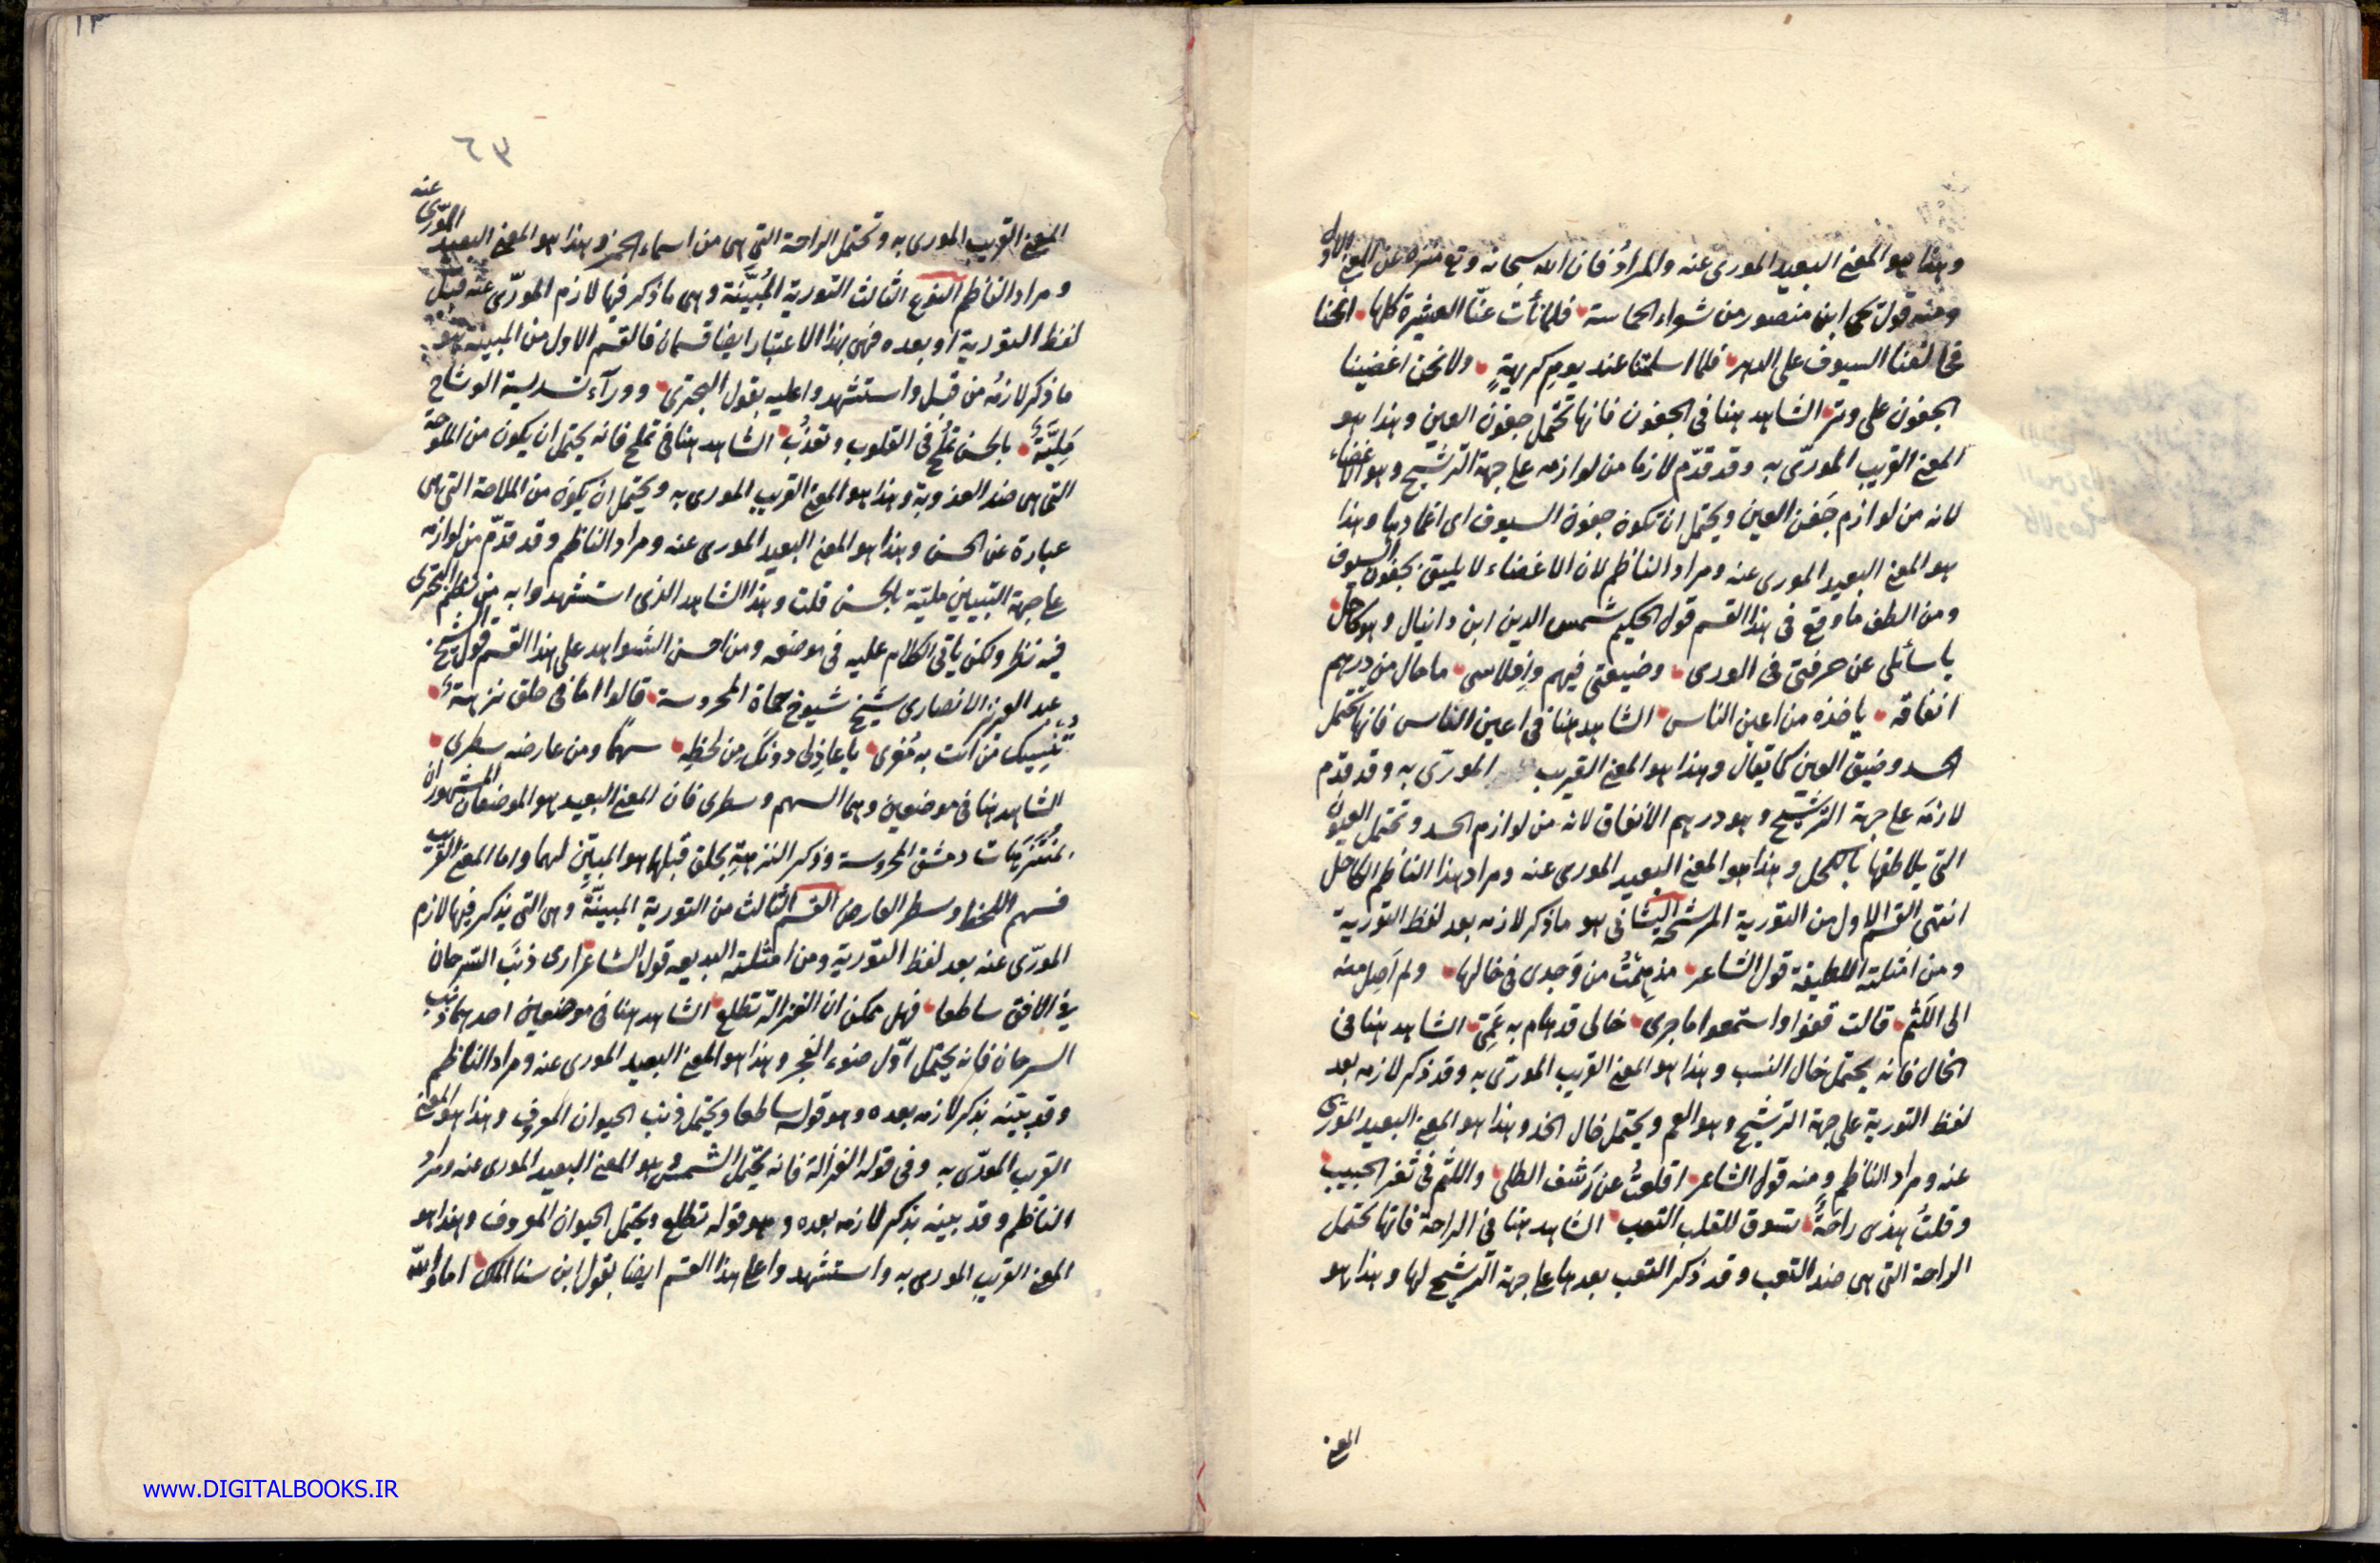 وهذا هو المعنى البعيد المورى عنه والمراد فان الله سبحانه وتع منزه عن المعنى الاول
ومنه قول يحيى ابن منصور من شواء الحماسة فلما نأت عنا العشيرة كلها انخنا
فحالفنا السيوف على الدهر فلما اسلمتنا عند يوم كريهة ولا نحن اغضينا
الجفون على وتر الشاهد هنا في الجفون فانها تحتمل جفون العين وهذا هو
المعنى القريب المورّى به وقد قدّم لازما من لوازمه على جهة الترشيح وهو الاغضاء
لانه من لوازم جفن العين ويحتمل ان تكون جفون السيوف اى اغمادها وهذا
هو المعنى البعيد المورى عنه ومراد الناظم لان الاغضاء لا يليق بجفون السيوف
ومن الطف ما وقع في هذا القسم قول الحكيم شمس الدين ابن دانيال وهو كاحل
يا سائلى عن حرفتى في الورى وضيعتى فيهم وافلاسى ما حال من درهم
انفاقه ياخذه من اعين الناس الشاهد هنا في اعين الناس فانها تحتمل
الحسد وضيق العين كما يقال وهذا هو المعنى القريب المورّى به وقد قدم
لازمه على جهة الترشيح وهو درهم الانفاق لانه من لوازم الحسد وتحتمل العيون
التى يلاطفها بالكحل وهذا هو المعنى البعيد المورى عنه ومراد هذا الناظم الكاحل
انتهى القسم الاول من التورية المرشحة الثانى هو ما ذكر لازمه بعد لفظ التورية
ومن امثلته اللطيفة قول الشاعر مذ همت من وجدى في خالها ولم اصل منه
الى اللثم قالت قفوا واستمعوا ما جرى خالى قد هام به عمى الشاهد هنا في
الخال فانه يحتمل خال النسب وهذا هو المعنى القريب المورّى به وقد ذكر لازمه بعد
لفظ التورية على جهة الترشيح وهو العم ويحتمل خال الخد وهذا هو المعنى البعيد المورى
عنه ومراد الناظم ومنه قول الشاعر اقلعت عن رشف الطلى واللثم في ثغر الحبيب
وقلت هذى راحة تسوق للقلب التعب الشاهد هنا في الراحة فانها تحتمل
الراحة التى هى ضد التعب وقد ذكر التعب بعدها على جهة الترشيح لها وهذا هو
المعنى
٦٣
المعنى القريب المورى به وتحتمل الراحة التى هى من اسماء الخمر وهذا هو المعنى البعيد المورّى عنه
ومراد الناظم النوع الثالث التورية المبيّنة وهى ما ذكر فيها لازم المورّى عنه قبل
لفظ التورية او بعده فهى بهذا الاعتبار ايضا قسمان فالقسم الاول من المبينة هو
ما ذكر لازمه من قبل واستشهدوا عليه بقول البحترى ووراء تسدية الوشاح
مليّة بالحسن تملح في القلوب وتعذب الشاهد هنا في تملح فانه يحتمل ان يكون من الملوحة
التى هى ضد العذوبة وهذا هو المعنى القريب المورى به ويحتمل ان يكون من الملاحة التى هى
عبارة عن الحسن وهذا هو المعنى البعيد المورى عنه ومراد الناظم وقد قدّم من لوازمه
على جهة التبيين مليّة بالحسن قلت وهذا الشاهد الذى استشهدوا به من نظم البحترى
فيه نظر ولكن ياتى الكلام عليه في موضعه ومن احسن الشواهد على هذا القسم قول الشيخ
عبد العزيز الانصارى شيخ شيوخ حماة المحروسة قالوا اما في جلق نزهة
تنسيك من انت به مغرى يا عاذلى دونك من لحظه سهما ومن عارضه سطرى
الشاهد هنا في موضعين وهما السهم وسطرى فان المعنى البعيد هو الموضعان المشهوران
بمنتزهات دمشق المحروسة وذكر النزهة بجلق قبلها هو المبيّن لهما واما المعنى القريب
فسهم اللحظ وسطر العارض القسم الثالث من التورية المبينة وهى التى يذكر فيها لازم
المورّى عنه بعد لفظ التورية ومن امثلته البديعه قول الشاعر ارى ذنب السرحان
في الافق ساطعا فهل ممكن ان الغزالة تطلع الشاهد هنا في موضعين احدهما ذنب
السرحان فانه يحتمل اوّل ضوء الفجر وهذا هو المعنى البعيد المورى عنه ومراد الناظم
وقد بيّنه بذكر لازمه بعده وهو قوله ساطعا ويحتمل ذنب الحيوان المعروف وهذا هو المعنى
القريب المورّى به وفى قوله الغزالة فانه يحتمل الشمس وهو المعنى البعيد المورى عنه ومراد
الناظم وقد بينه بذكر لازمه بعده وهو قوله تطلع ويحتمل الحيوان المعروف وهذا هو
المعنى القريب المورى به واستشهدوا على هذا القسم ايضا بقول ابن سنا الملك اما والله
www.DIGITALBOOKS.IR